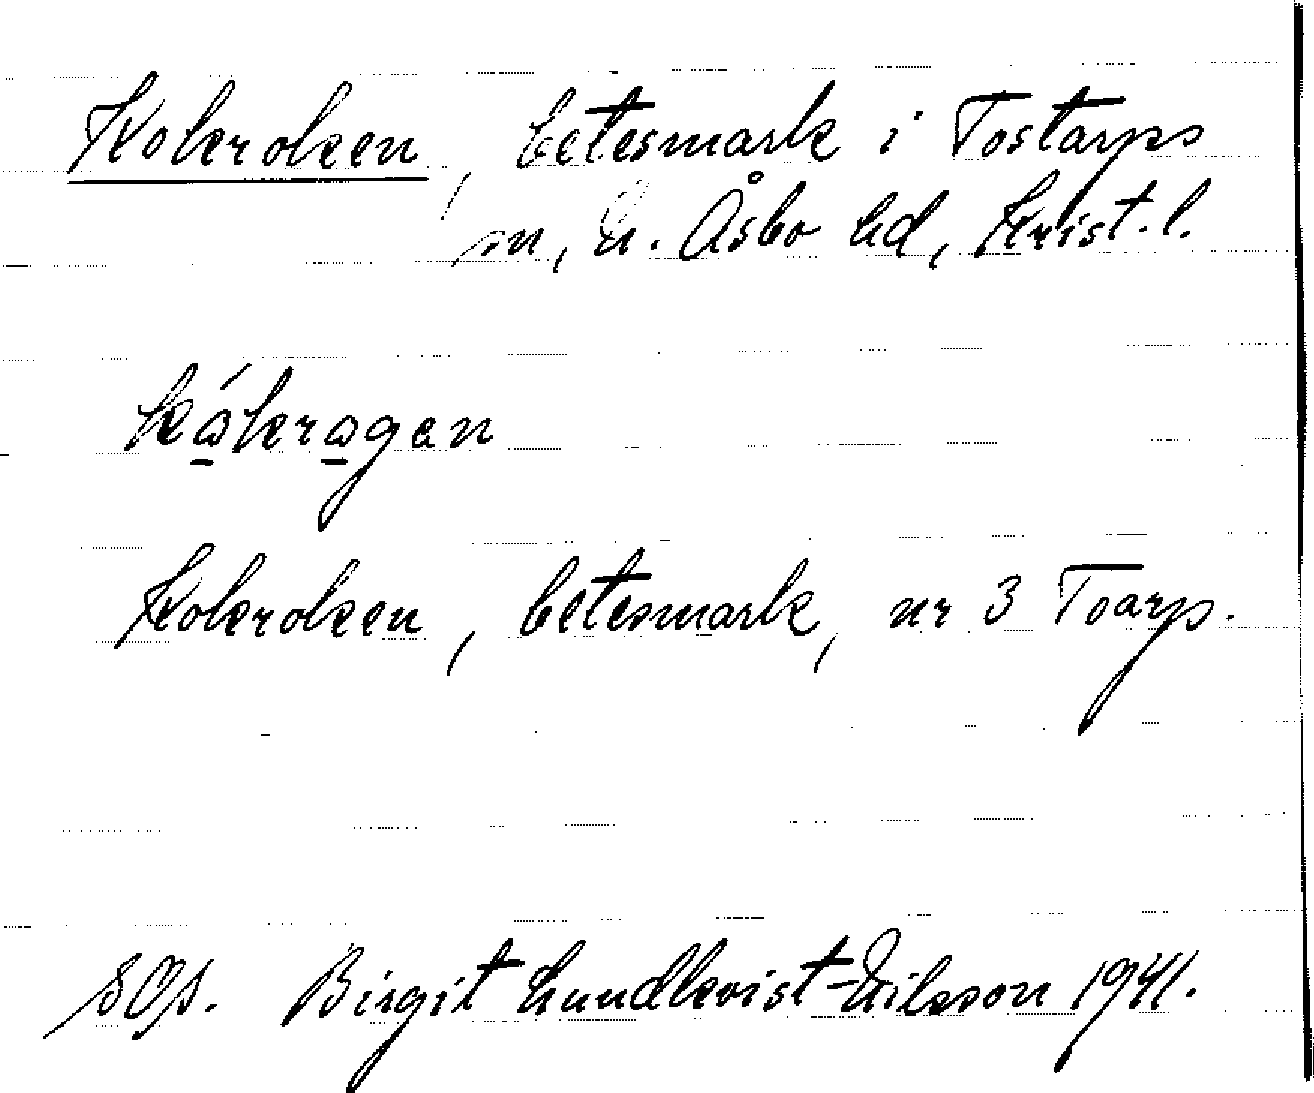 Kokroken, betesmark i Tostarps
sn, N. Åsbo hd, Krist. l.
kɷ̱́krɷ̱gan
Kokroken, betesmark, nr 3 Toarp.
Birgit Lundkvist-Nilsson 1941.